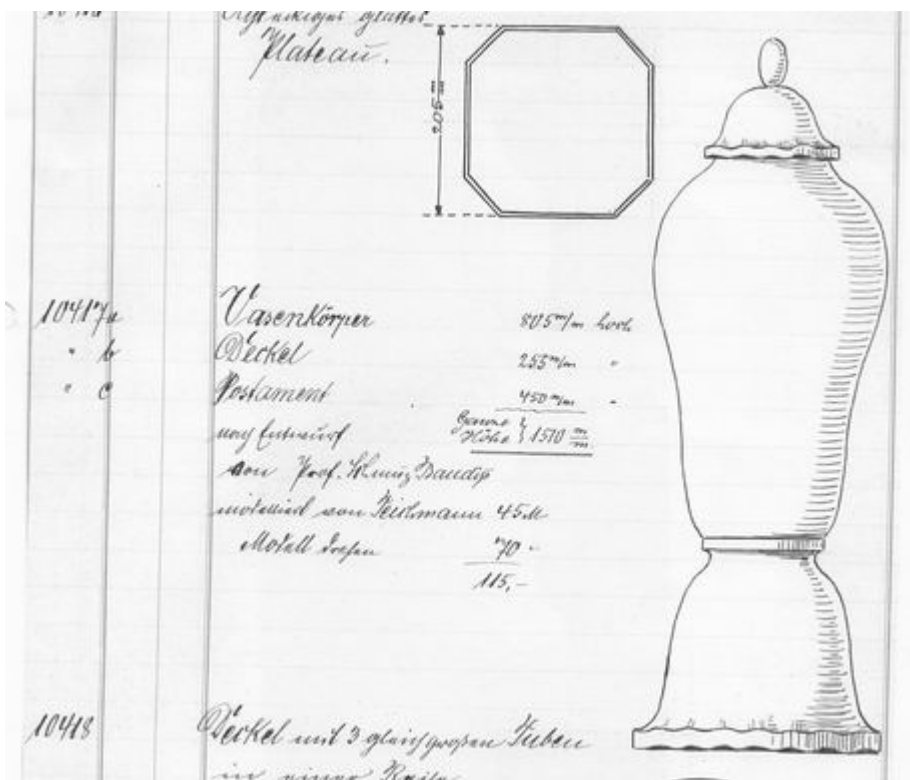 Plateau.
205 m
10417a Vasenkörper 805 m/m hoch
" b Deckel 255 m/m "
" c Postament 450 m/m "
nach Entwurf Ganze Höhe } 1510 m/m.
von Prof. Baudis
modelliert von 45 M
Modell drehen 70 "
115,-
10418 Deckel mit 3 gleich großen Tuben
in einer Reihe